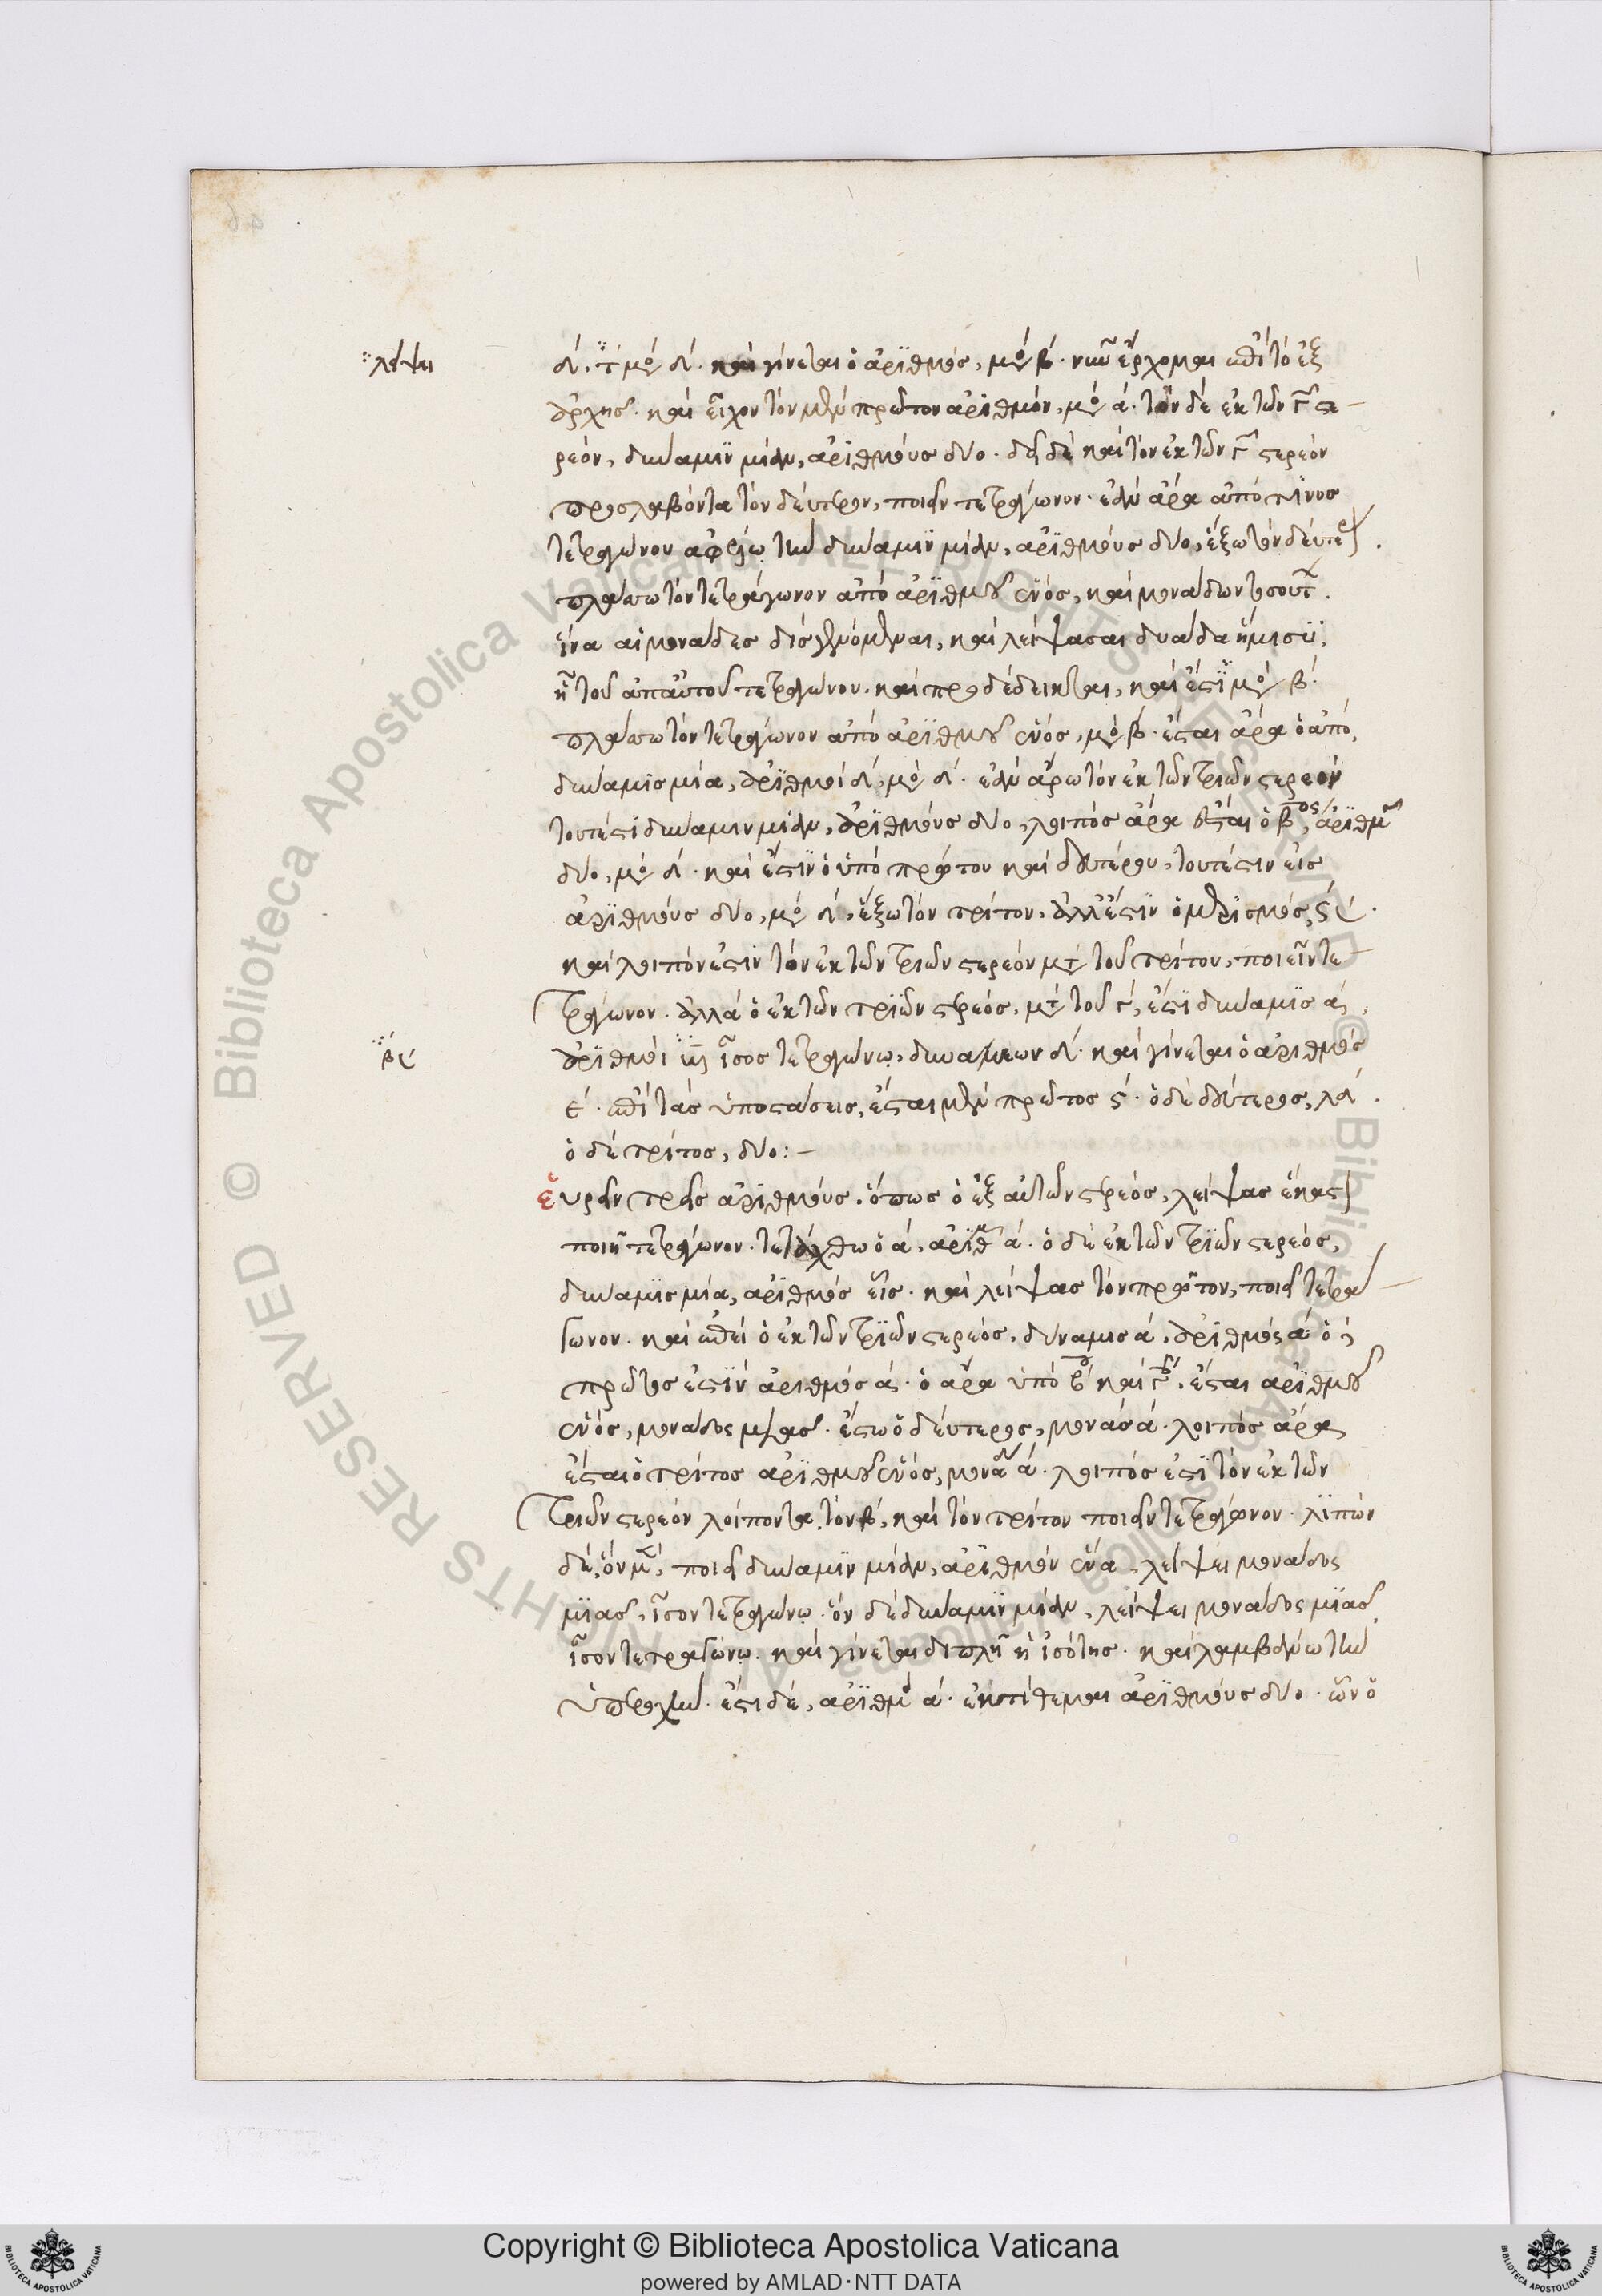 λείψει
δ΄. μο δ΄. καὶ γίνεται ὁ ἀριθμός, μο β΄. νῦν ἔρχομαι ἐπὶ τὸ ἐξ
ἀρχῆς. καὶ εἶχον τὸν μὲν πρῶτον ἀριθμόν, μο ά. τὸν δὲ ἐκ τῶν γ στε-
ρεόν, δύναμιν μίαν, ἀριθμοὺς δύο. δεῖ δὲ καὶ τὸν ἐκ τῶν γ στερεὸν
προσλαβόντα τὸν δεύτερον, ποιεῖν τετράγωνον. ἐὰν ἄρα ἀπό τινος
τετραγώνου ἀφέλω τὴν δύναμιν μίαν, ἀριθμοὺς δύο, ἕξω τὸν δεύτερ
πλάσσω τὸν τετράγωνον ἀπὸ ἀριθμοῦ ἑνός, καὶ μονάδων τοσούτ.
ἵνα αἱ μονάδες δὶς γενόμεναι, καὶ λείψασαι δυάδα ἥμισυ.
ἢ τοῦ ἀπ' αὐτοῦ τετραγώνου. καὶ προδέδεικται, καὶ ἔστι μο β΄.
πλάσσω τὸν τετράγωνον ἀπὸ ἀριθμοῦ ἑνός, μο β΄. ἔσται ἄρα ὁ ἀπό,
δύναμις μία, ἀριθμοὶ δ΄, μο δ΄. ἐὰν ἄρω τὸν ἐκ τῶν τριῶν στερεὸν
τουτέστι δύναμιν μίαν, ἀριθμοὺς δύο, λοιπὸς ἄρα ἔσται ὁ βος, ἀριθμ
δύο, μο δ΄. καὶ ἔστιν ὁ ὑπὸ πρώτου καὶ δευτέρου, τουτέστιν εἰς
ἀριθμοὺς δύο, μο δ΄, ἕξω τὸν τρίτον. ἀλλ' ἔστιν ὁ μερισμός,
καὶ λοιπόν ἐστιν τὸν ἐκ τῶν τριῶν στερεὸν μετ τοῦ τρίτου, ποιεῖν τε-
τράγωνον. ἀλλὰ ὁ ἐκ τῶν τριῶν στερεός, μετ τοῦ γ΄, ἐστὶ δύναμις ά,
βς
ἀριθμοὶ ἴσος τετραγώνῳ, δυνάμεων δ΄. καὶ γίνεται ὁ ἀριθμός
ε΄. ἐπὶ τὰς ὑποστάσεις, ἔσται μὲν πρῶτος ς΄. ὁ δὲ δεύτερος, λδ΄.
ὁ δὲ τρίτος, δύο:-
εὑρεῖν τρεῖς ἀριθμούς, ὅπως ὁ ἐξ αὐτῶν στερεός, λείψας ἕκαστ
ποιῇ τετράγωνον. τετάχθω ὁ ά, ἀριθμ ά. ὁ δὲ ἐκ τῶν τριῶν στερεός,
δύναμις μία, ἀριθμὸς εἷς. καὶ λείψας τὸν πρῶτον, ποιεῖ τετρά-
γωνον. καὶ ἐπεὶ ὁ ἐκ τῶν τριῶν στερεός, δύναμις ά, ἀριθμὸς ά ὁ
πρῶτός ἐστιν ἀριθμός ά. ὁ ἄρα ὑπὸ βου καὶ γου, ἔσται ἀριθμοῦ
ἑνός, μονάδος μιᾶς. ἔστω ὁ δεύτερος, μονάς ά. λοιπὸς ἄρα
ἔσται ὁ τρίτος ἀριθμοῦ ἑνός, μονάδ ά. λοιπός ἐστι τὸν ἐκ τῶν
τριῶν στερεὸν λείποντα τὸν β, καὶ τὸν τρίτον ποιεῖν τετράγωνον. λιπὼν
δὲ, ὃν μὲν, ποιεῖ δύναμιν μίαν, ἀριθμὸν ἕνα, λείψει μονάδος
μιᾶς, ἴσον τετραγώνῳ. ὃν δὲ δύναμιν μίαν, λείψει μονάδος μιᾶς
ἴσον τετραγώνῳ. καὶ γίνεται διπλῆ ἡ ἰσότης. καὶ λαμβάνω τὴν
ὑπεροχήν. ἔστι δέ, ἀριθμ ά. ἐκτίθεμαι ἀριθμοὺς δύο. ὧν ὁ